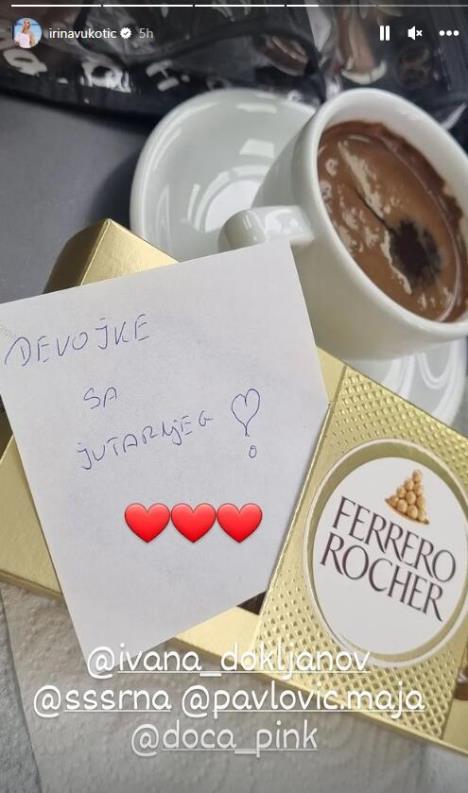 irinavukotic 5h
DEVOJKE
SA
JUTARNJEG
FERRERO
ROCHER
@ivana_dokljanov
@sssrna @pavlovic.maja
@doca_pink